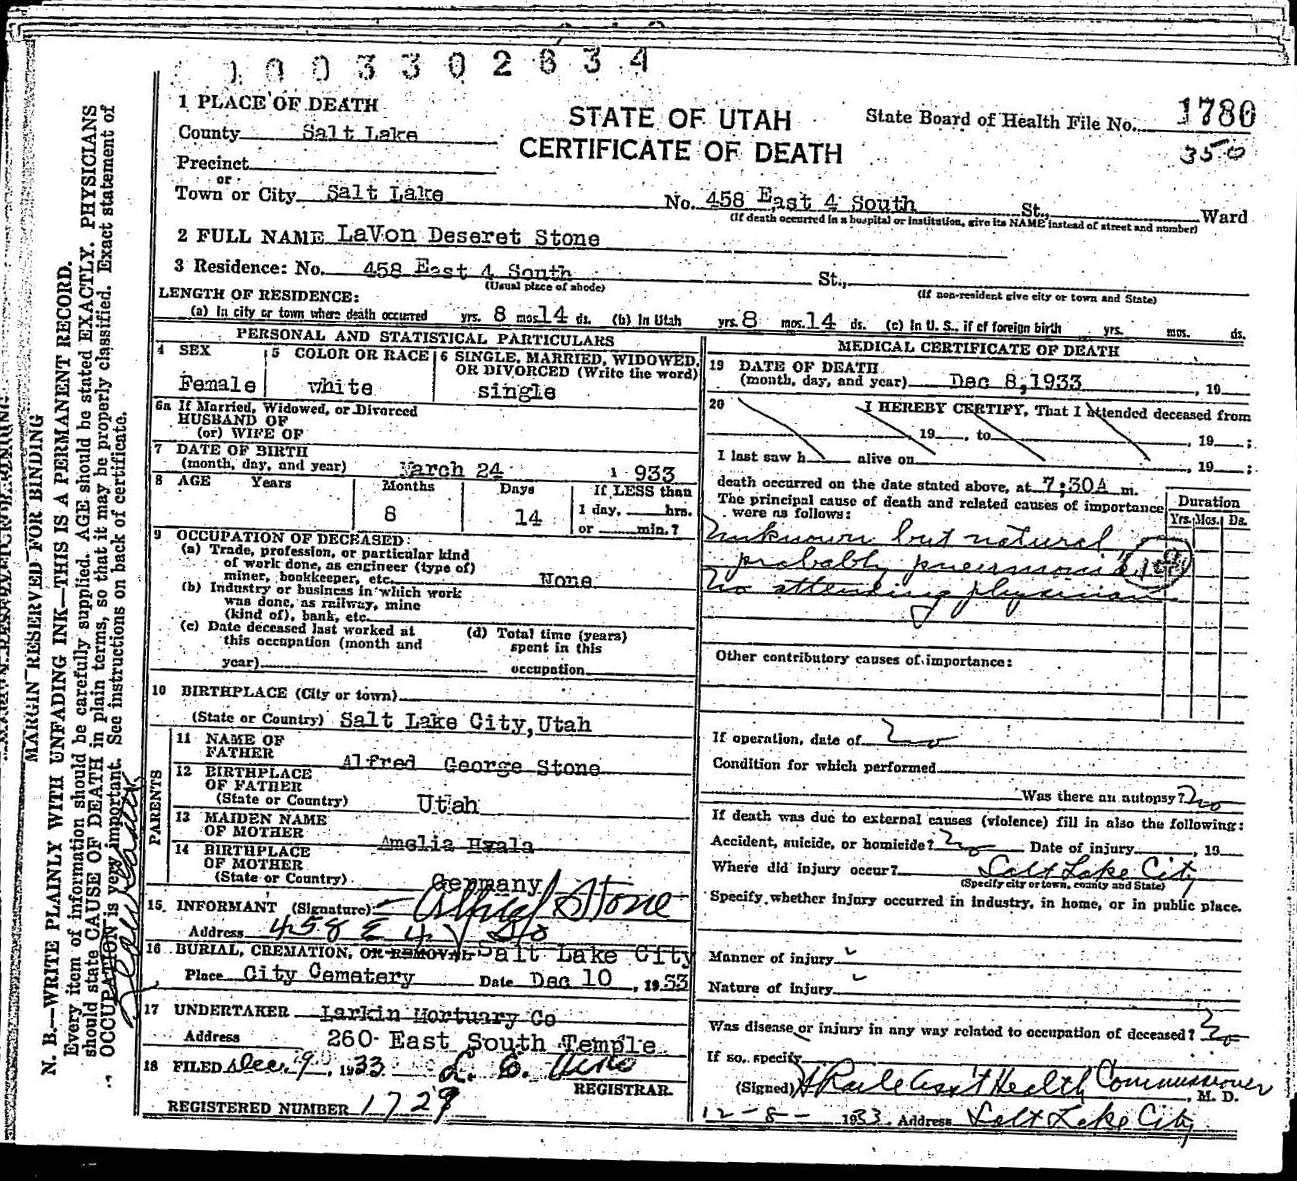 1003302634
1 PLACE OF DEATH
STATE OF UTAH
CERTIFICATE OF DEATH
State Board of Health File No. 1780
350
County Salt Lake
Precinct
or
Town or City Salt Lake No. 458 East 4 South St., Ward
(If death occurred in a hospital or institution, give its NAME instead of street and number)
2 FULL NAME LaVon Deseret Stone
3 Residence: No. 458 East 4 South St.,
(Usual place of abode) (If non-resident give city or town and State)
LENGTH OF RESIDENCE:
(a) In city or town where death occurred yrs. 8 mos. 14 ds. (b) In Utah yrs. 8 mos. 14 ds. (c) In U. S., if of foreign birth yrs. mos. ds.
PERSONAL AND STATISTICAL PARTICULARS
4 SEX
Female
5 COLOR OR RACE
white
6 SINGLE, MARRIED, WIDOWED,
OR DIVORCED (Write the word)
single
6a If Married, Widowed, or Divorced
HUSBAND OF
(or) WIFE OF
7 DATE OF BIRTH
(month, day, and year) March 24 1933
8 AGE Years Months Days If LESS than
8 14 1 day, hrs.
or min.?
9 OCCUPATION OF DECEASED:
(a) Trade, profession, or particular kind
of work done, as engineer (type of)
miner, bookkeeper, etc. None
(b) Industry or business in which work
was done, as railway, mine
(kind of), bank, etc.
(c) Date deceased last worked at
this occupation (month and
year)
(d) Total time (years)
spent in this
occupation
10 BIRTHPLACE (City or town)
(State or Country) Salt Lake City, Utah
PARENTS
11 NAME OF
FATHER Alfred George Stone
12 BIRTHPLACE
OF FATHER
(State or Country) Utah
13 MAIDEN NAME
OF MOTHER Amelia Hwala
14 BIRTHPLACE
OF MOTHER
(State or Country) Germany
15. INFORMANT (Signature) Alfred Stone
Address 458 E 4 So
16 BURIAL, CREMATION, OR REMOVAL Salt Lake City
Place City Cemetery Date Dec 10, 1933
17 UNDERTAKER Larkin Mortuary Co
Address 260 East South Temple
18 FILED Dec. 9, 1933
REGISTRAR.
REGISTERED NUMBER 1729
MEDICAL CERTIFICATE OF DEATH
19 DATE OF DEATH
(month, day, and year) Dec 8,1933, 19
20 I HEREBY CERTIFY, That I attended deceased from
, 19 , to , 19 ;
I last saw h alive on , 19 ;
death occurred on the date stated above, at 7;30A m.
The principal cause of death and related causes of importance
were as follows:
Duration
Yrs. Mos. Ds.
Unknown but natural
probably pneumonia
No attending physician
Other contributory causes of importance:
If operation, date of No
Condition for which performed
Was there an autopsy? No
If death was due to external causes (violence) fill in also the following:
Accident, suicide, or homicide? No Date of injury , 19
Where did injury occur? Salt Lake City
(Specify city or town, county and State)
Specify whether injury occurred in industry, in home, or in public place.
Manner of injury
Nature of injury
Was disease or injury in any way related to occupation of deceased? No
If so, specify
(Signed) Ass't Health Commissioner, M. D.
12-8- 1933. Address Salt Lake City
MARGIN RESERVED FOR BINDING
N. B.—WRITE PLAINLY WITH UNFADING INK—THIS IS A PERMANENT RECORD.
Every item of information should be carefully supplied. AGE should be stated EXACTLY. PHYSICIANS
should state CAUSE OF DEATH in plain terms, so that it may be properly classified. Exact statement of
OCCUPATION is very important. See instructions on back of certificate.